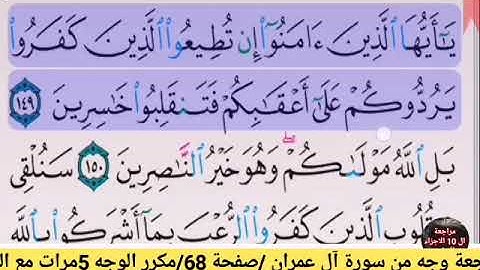 يَـٰٓأَيُّهَا ٱلَّذِينَ ءَامَنُوٓا۟ إِن تُطِيعُوا۟ ٱلَّذِينَ كَفَرُوا۟
يَرُدُّوكُمْ عَلَىٰٓ أَعْقَـٰبِكُمْ فَتَنقَلِبُوا۟ خَـٰسِرِينَ ١٤٩
بَلِ ٱللَّهُ مَوْلَىٰكُمْ ۖ وَهُوَ خَيْرُ ٱلنَّـٰصِرِينَ ١٥٠ سَنُلْقِى
قُلُوبِ ٱلَّذِينَ كَفَرُوا۟ ٱلرُّعْبَ بِمَآ أَشْرَكُوا۟ بِٱللَّهِ
مراجعة
ال 10 الاجزاء
جعة وجه من سورة آل عمران /صفحة 68/مكرر الوجه 5مرات مع ال